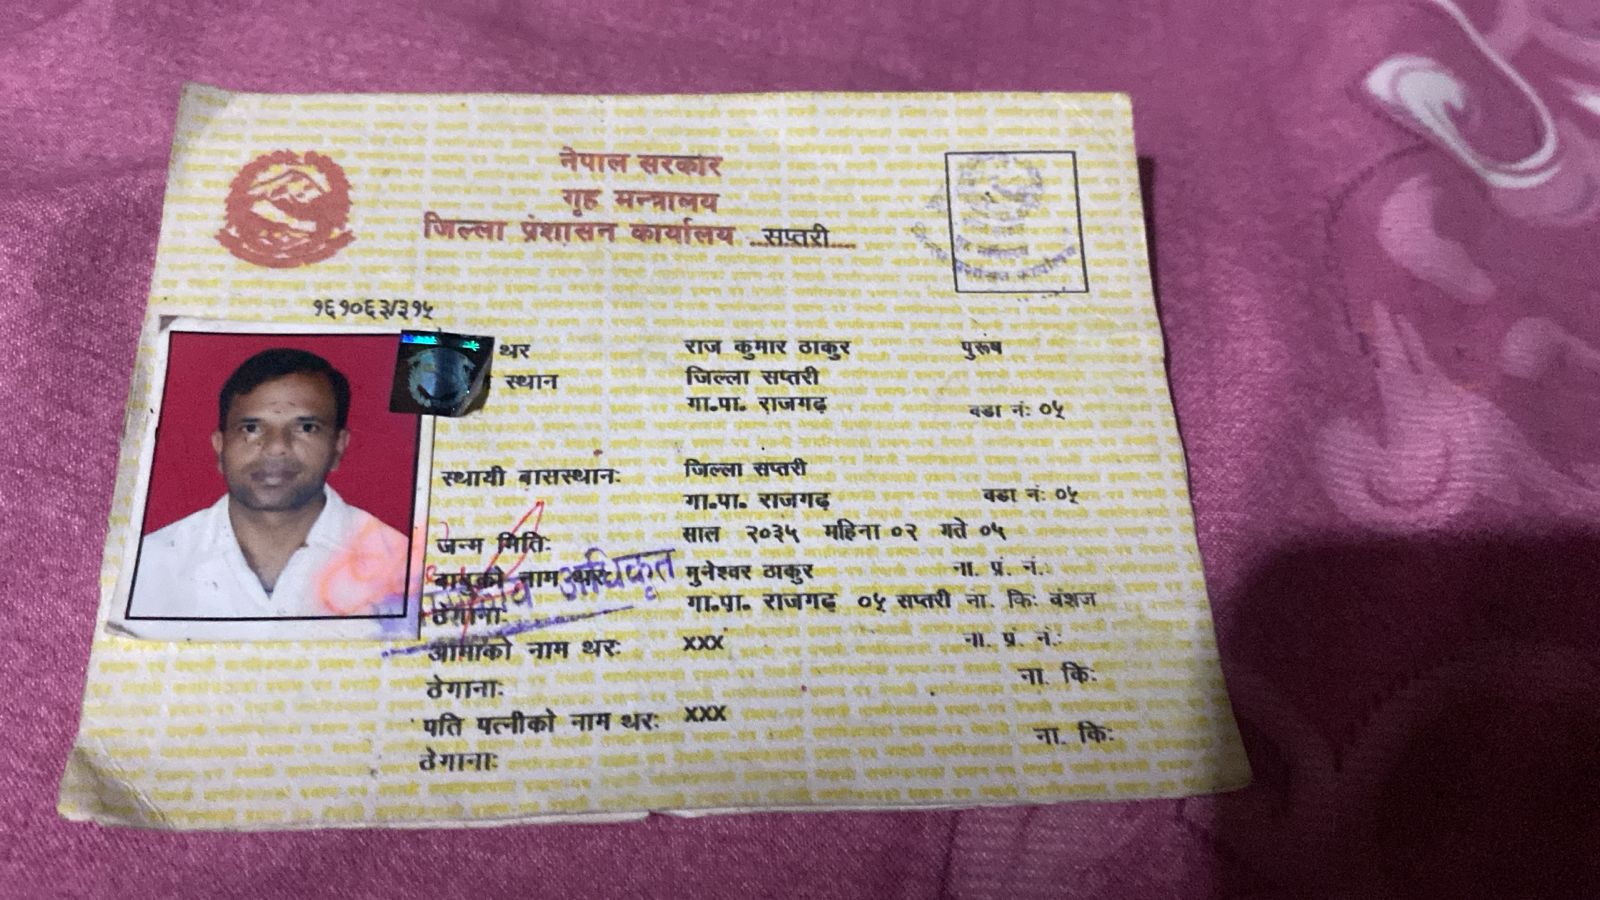 नेपाल सरकार
गृह मन्त्रालय
जिल्ला प्रशासन कार्यालय सप्तरी
१६१०६३/३१५
थर राज कुमार ठाकुर पुरूष
स्थान जिल्ला सप्तरी
गा.पा. राजगढ़ वडा नं: ०५
स्थायी बासस्थान: जिल्ला सप्तरी
गा.पा. राजगढ़ वडा नं: ०५
जन्म मिति: साल २०३५ महिना ०२ गते ०५
बाबुको नाम थर: मुनेश्वर ठाकुर ना. प्र. नं.:
ठेगाना: गा.पा. राजगढ़ ०५ सप्तरी ना. कि: वंशज
आमाको नाम थर: xxx ना. प्र. नं.:
ठेगाना: ना. कि:
पति पत्नीको नाम थर: xxx
ठेगाना: ना. कि:
अधिकृत